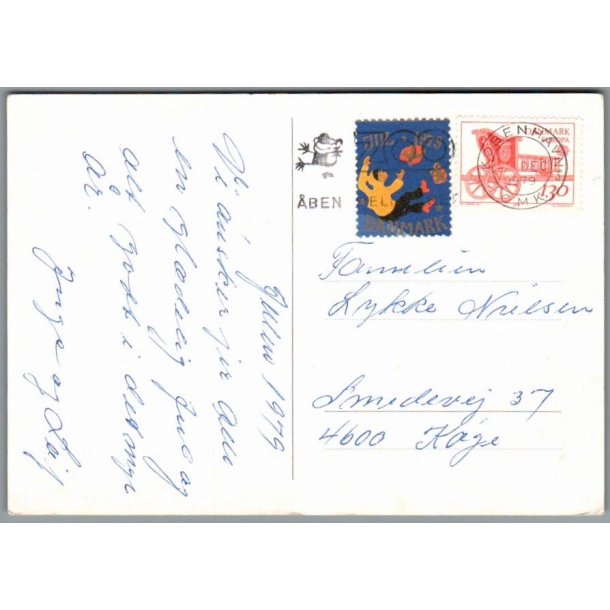 Julen 1979
Vi ønsker jer alle
en glædelig jul og
alt godt i det nye
år.
Inge og Kaj
ÅBEN
JUL 1979
DANMARK
DANMARK
EUROPA
130
KØBENHAVN
DEC
1979
OMK
Familien
Lykke Nielsen
Smedevej 37
4600 Køge